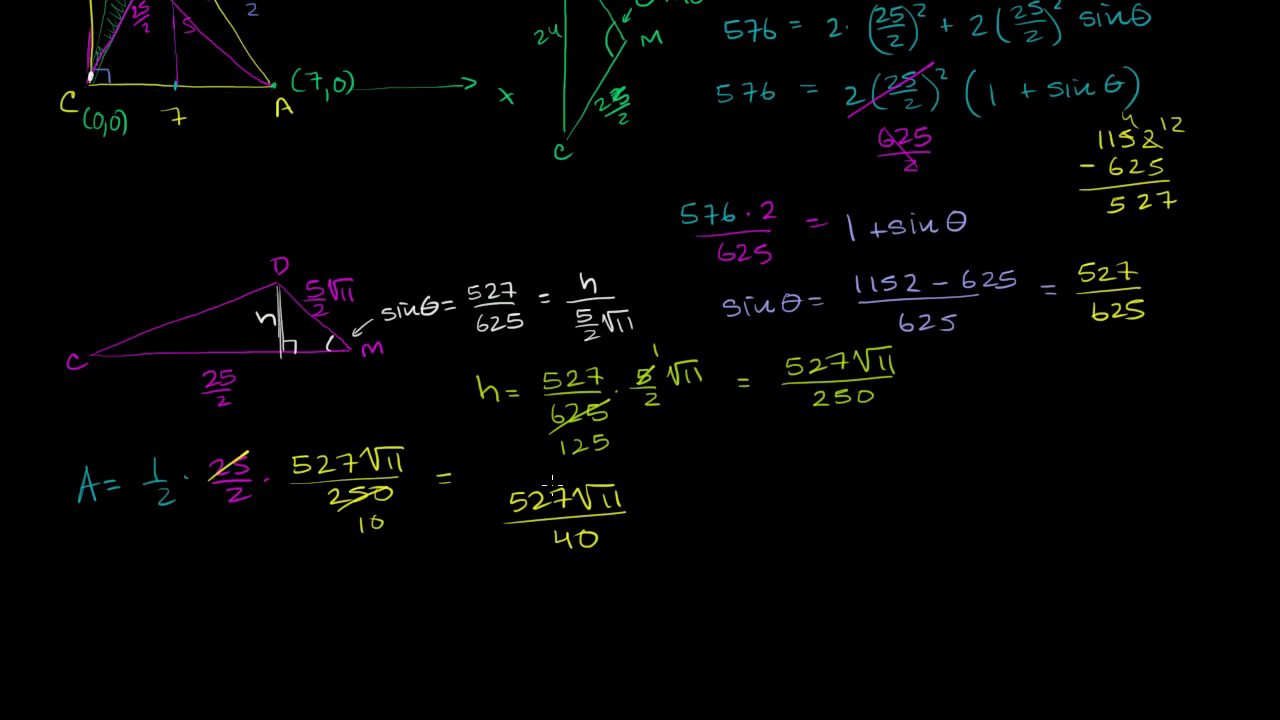 25/2
5
2
C
(0,0)
7
A
(7,0)
x
24
M
25/2
C
576 = 2 · (25/2)² + 2(25/2)² sinθ
576 = 2(25/2)² (1 + sinθ)
625/2
4 12
1152
- 625
527
576 · 2 / 625 = 1 + sin θ
sinθ = 1152 - 625 / 625 = 527/625
D
5/2 √11
h
C
M
25/2
sinθ = 527/625 = h / 5/2 √11
h = 527/625 · 5/2 √11 = 527√11 / 250
1
125
A = 1/2 · 25/2 · 527√11 / 250 = 527√11 / 40
10